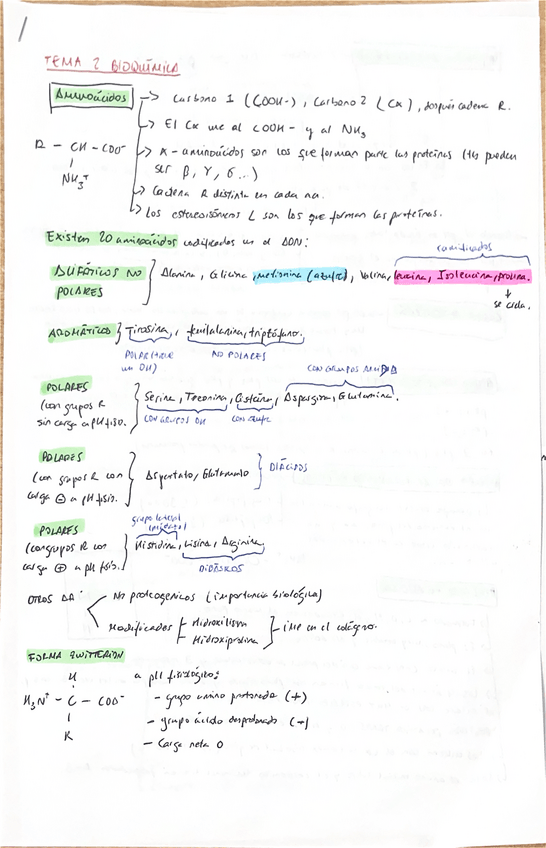 TEMA 2 BIOQUÍMICA
Aminoácidos → Carbono 1 (COOH-), Carbono 2 (Cα), después cadena R.
→ El Cα une al COOH- y al NH3
R - CH - COO-
NH3+
→ α-aminoácidos son los que forman parte las proteínas (tb pueden
ser β, γ, δ...)
→ Cadena R distinta en cada aa.
→ Los estereoisómeros L son los que forman las proteínas.
Existen 20 aminoácidos codificados en el ADN:
ramificados
ALIFÁTICOS NO POLARES } Alanina, Glicina, metionina (azufre), Valina, leucina, Isoleucina, prolina.
se cicla.
AROMÁTICOS } Tirosina, fenilalanina, triptófano.
POLAR (tiene un OH)
NO POLARES
CON GRUPOS
POLARES
(con grupos R
sin carga a pH fisio.
} Serina, Treonina, Cisteína, Aspargina, Glutamina.
CON GRUPOS OH
CON azufre
POLARES
(con grupos R con
carga ⊖ a pH fisio.
} Aspartato, Glutamato } DIÁCIDOS
POLARES
(con grupos R con
carga ⊕ a pH fisio.
grupo lateral
} Histidina, Lisina, Arginina
DIBÁSICOS
OTROS AA:
No proteogenicos (importancia biológica)
Modificados
Hidroxilisina
Hidroxiprolina
} - IMP en el colágeno.
FORMA ZWITTERION
H
H3N+ - C - COO-
R
a pH fisiológico:
- grupo amino protonado (+)
- grupo ácido desprotonado (-)
- Carga neta 0